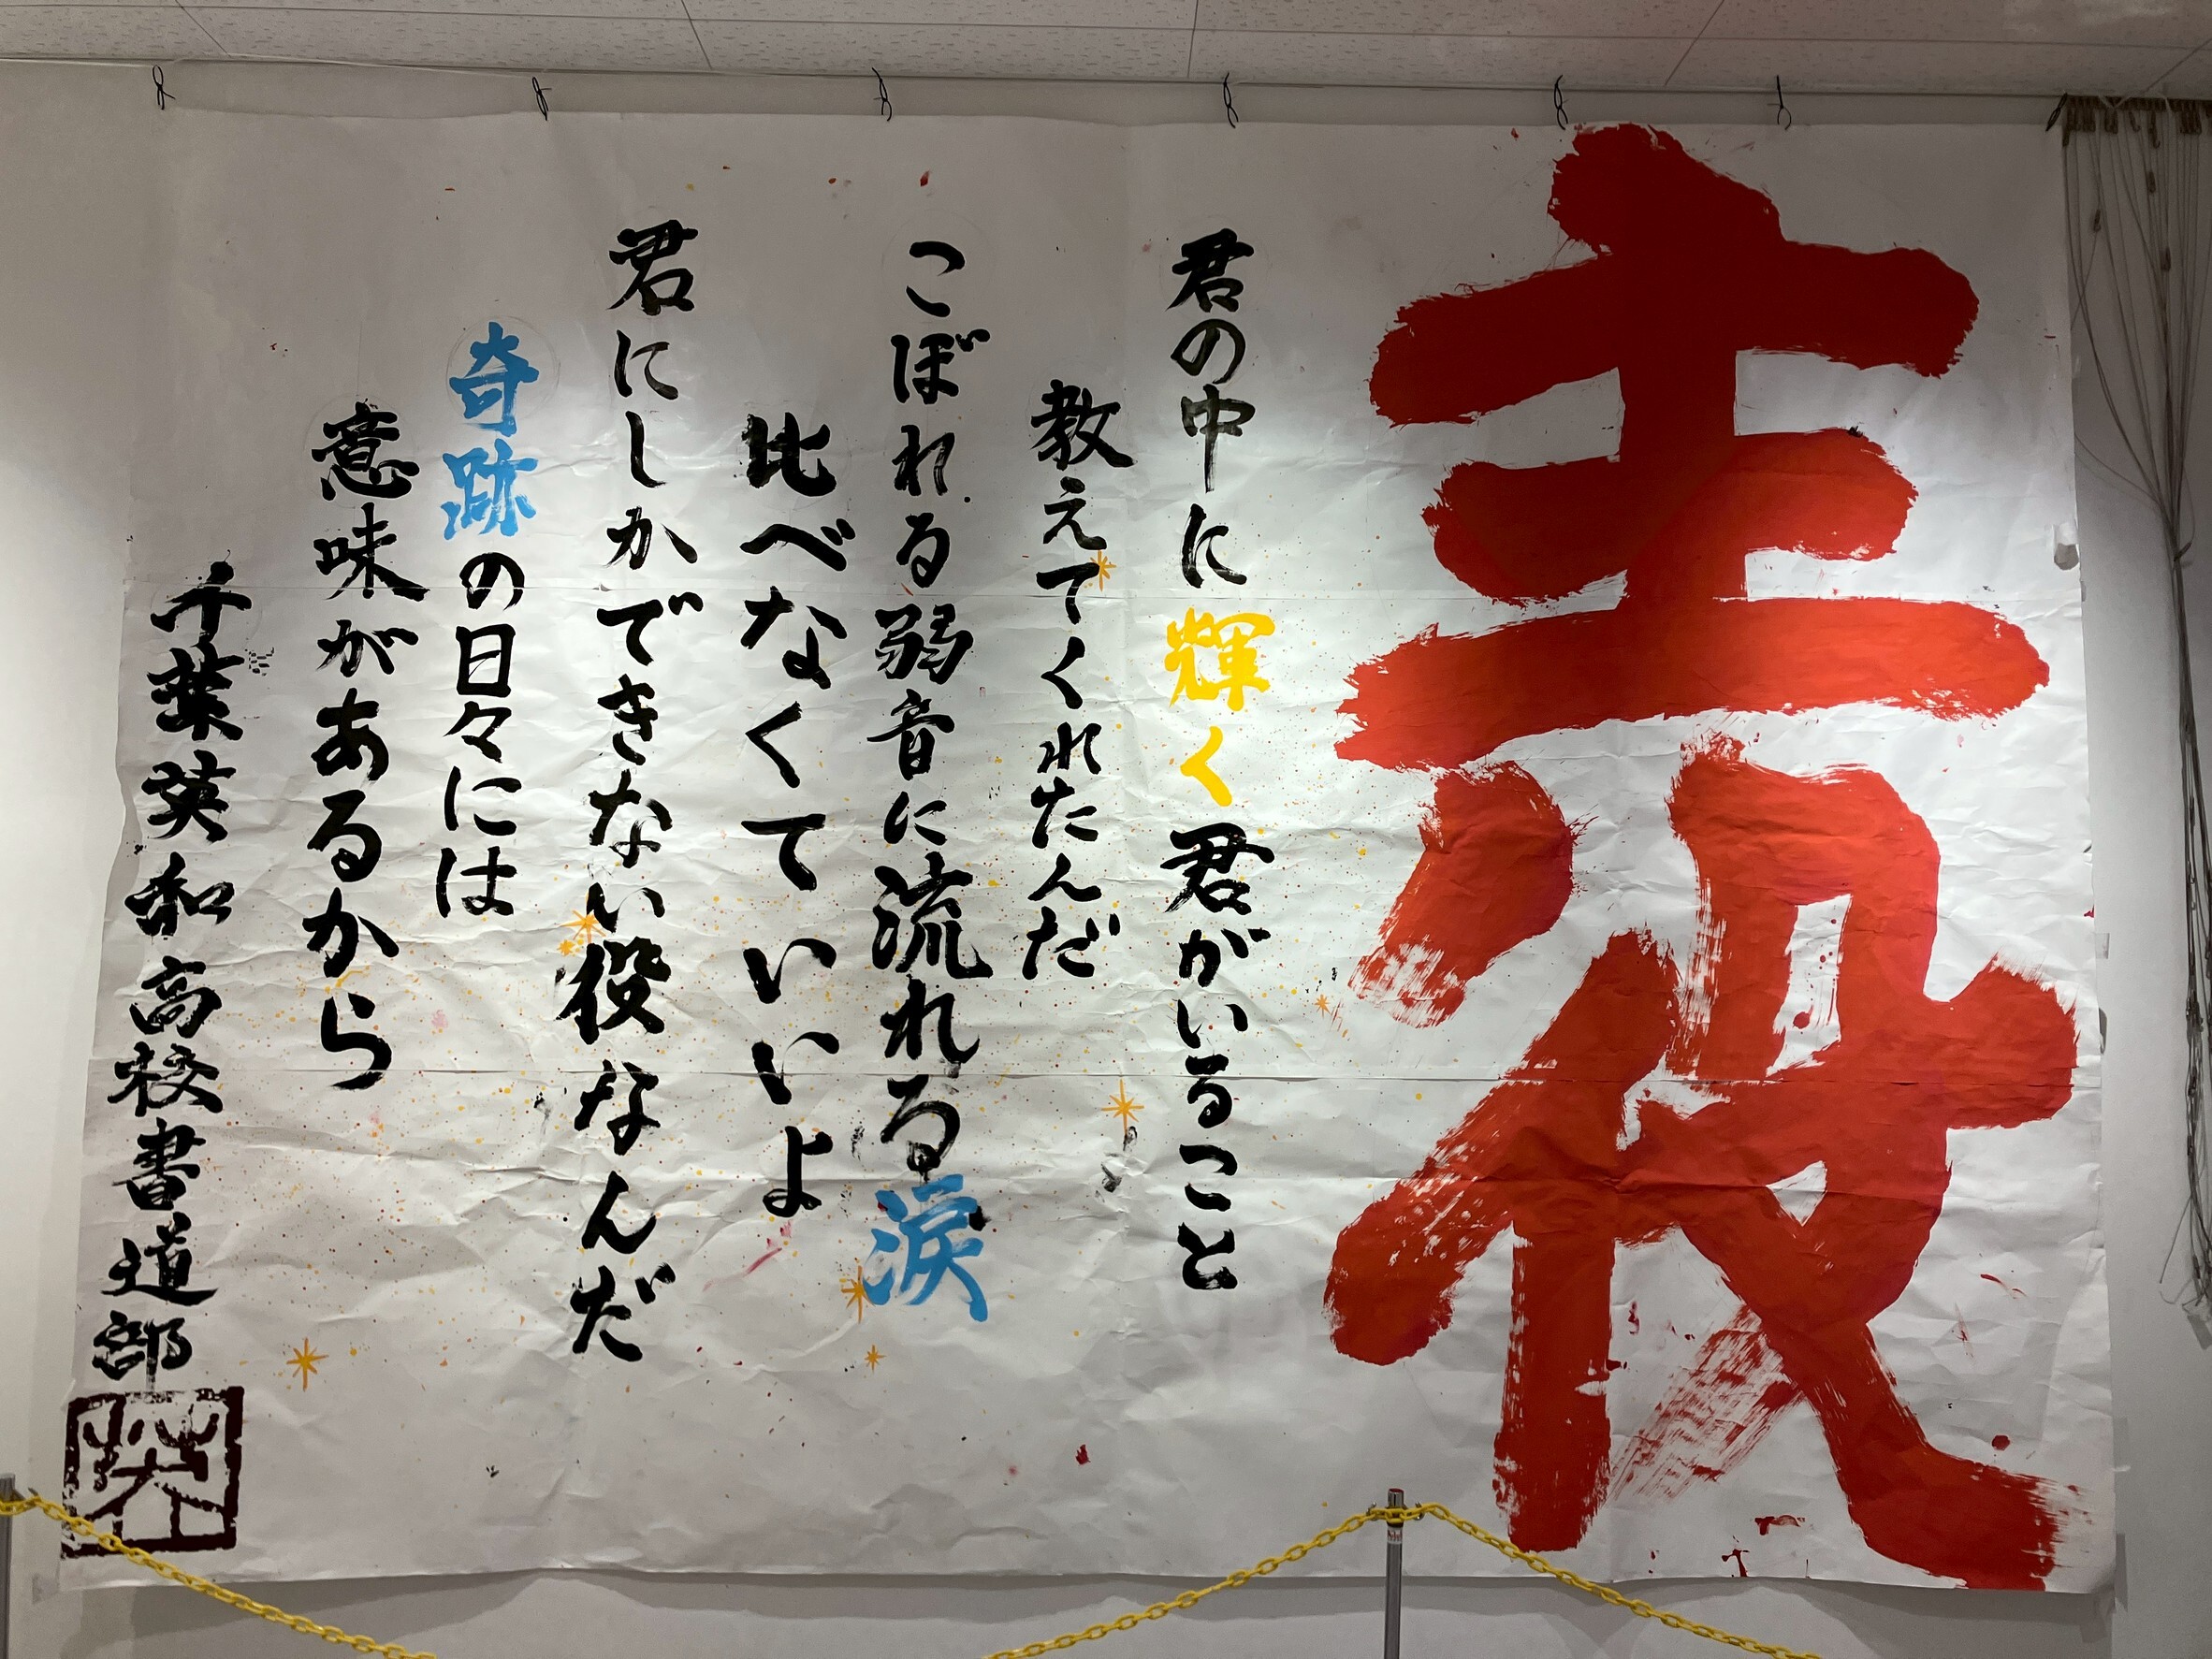 主役
君の中に輝く君がいること
教えてくれたんだ
こぼれる弱音に流れる涙
比べなくていいよ
君にしかできない役なんだ
奇跡の日々には
意味があるから
千葉英和高校書道部
英